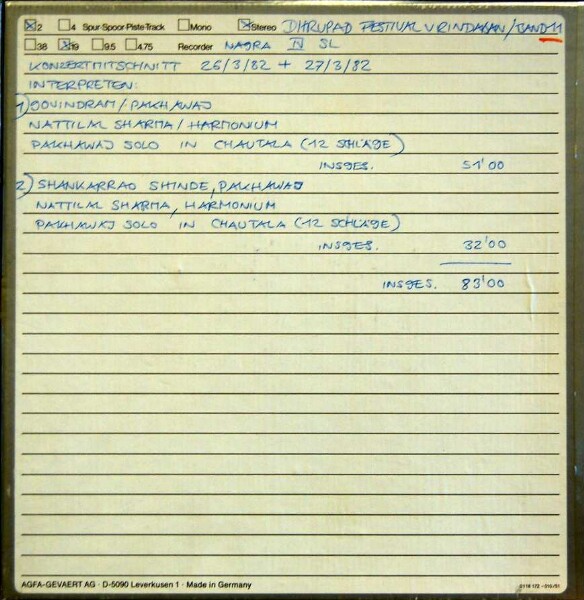 ☒2 ☐4 Spur·Spoor·Piste·Track ☐Mono ☒Stereo DHRUPAD FESTIVAL VRINDABAN/BAND 11
☐38 ☒19 ☐9.5 ☐4.75 Recorder NAGRA IV SL
KONZERTMITSCHNITT 26/3/82 + 27/3/82
INTERPRETEN:
1) GOVINDRAM/PAKHAWAJ
NATTILAL SHARMA/HARMONIUM
PAKHAWAJ SOLO IN CHAUTALA (12 SCHLÄGE)
INSGES. 51'00
2) SHANKARRAO SHINDE, PAKHAWAJ
NATTILAL SHARMA, HARMONIUM
PAKHAWAJ SOLO IN CHAUTALA (12 SCHLÄGE)
INSGES. 32'00
INSGES. 83'00
AGFA-GEVAERT AG · D-5090 Leverkusen 1 · Made in Germany